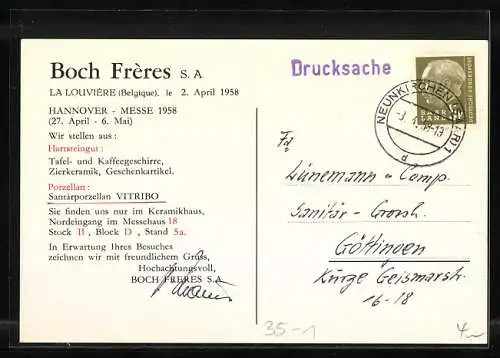 Boch Frères S. A.
LA LOUVIÈRE (Belgique), le 2. April 1958
HANNOVER - MESSE 1958
(27. April - 6. Mai)
Wir stellen aus :
Hartsteingut :
Tafel- und Kaffeegeschirre,
Zierkeramik, Geschenkartikel.
Porzellan :
Sanitärporzellan VITRIBO
Sie finden uns nur im Keramikhaus,
Nordeingang im Messehaus 18
Stock II , Block D , Stand 5a.
In Erwartung Ihres Besuches
zeichnen wir mit freundlichem Gruss,
Hochachtungsvoll,
BOCH FRERES S.A.
Drucksache
NEUNKIRCHEN (SAAR) 1
d
DEUTSCHE BUNDESPOST
SAARLAND
Fa
Lünemann & Comp.
Sanitär - Grossh.
Göttingen
Kurze Geismarstr.
16-18
35-1
4.-